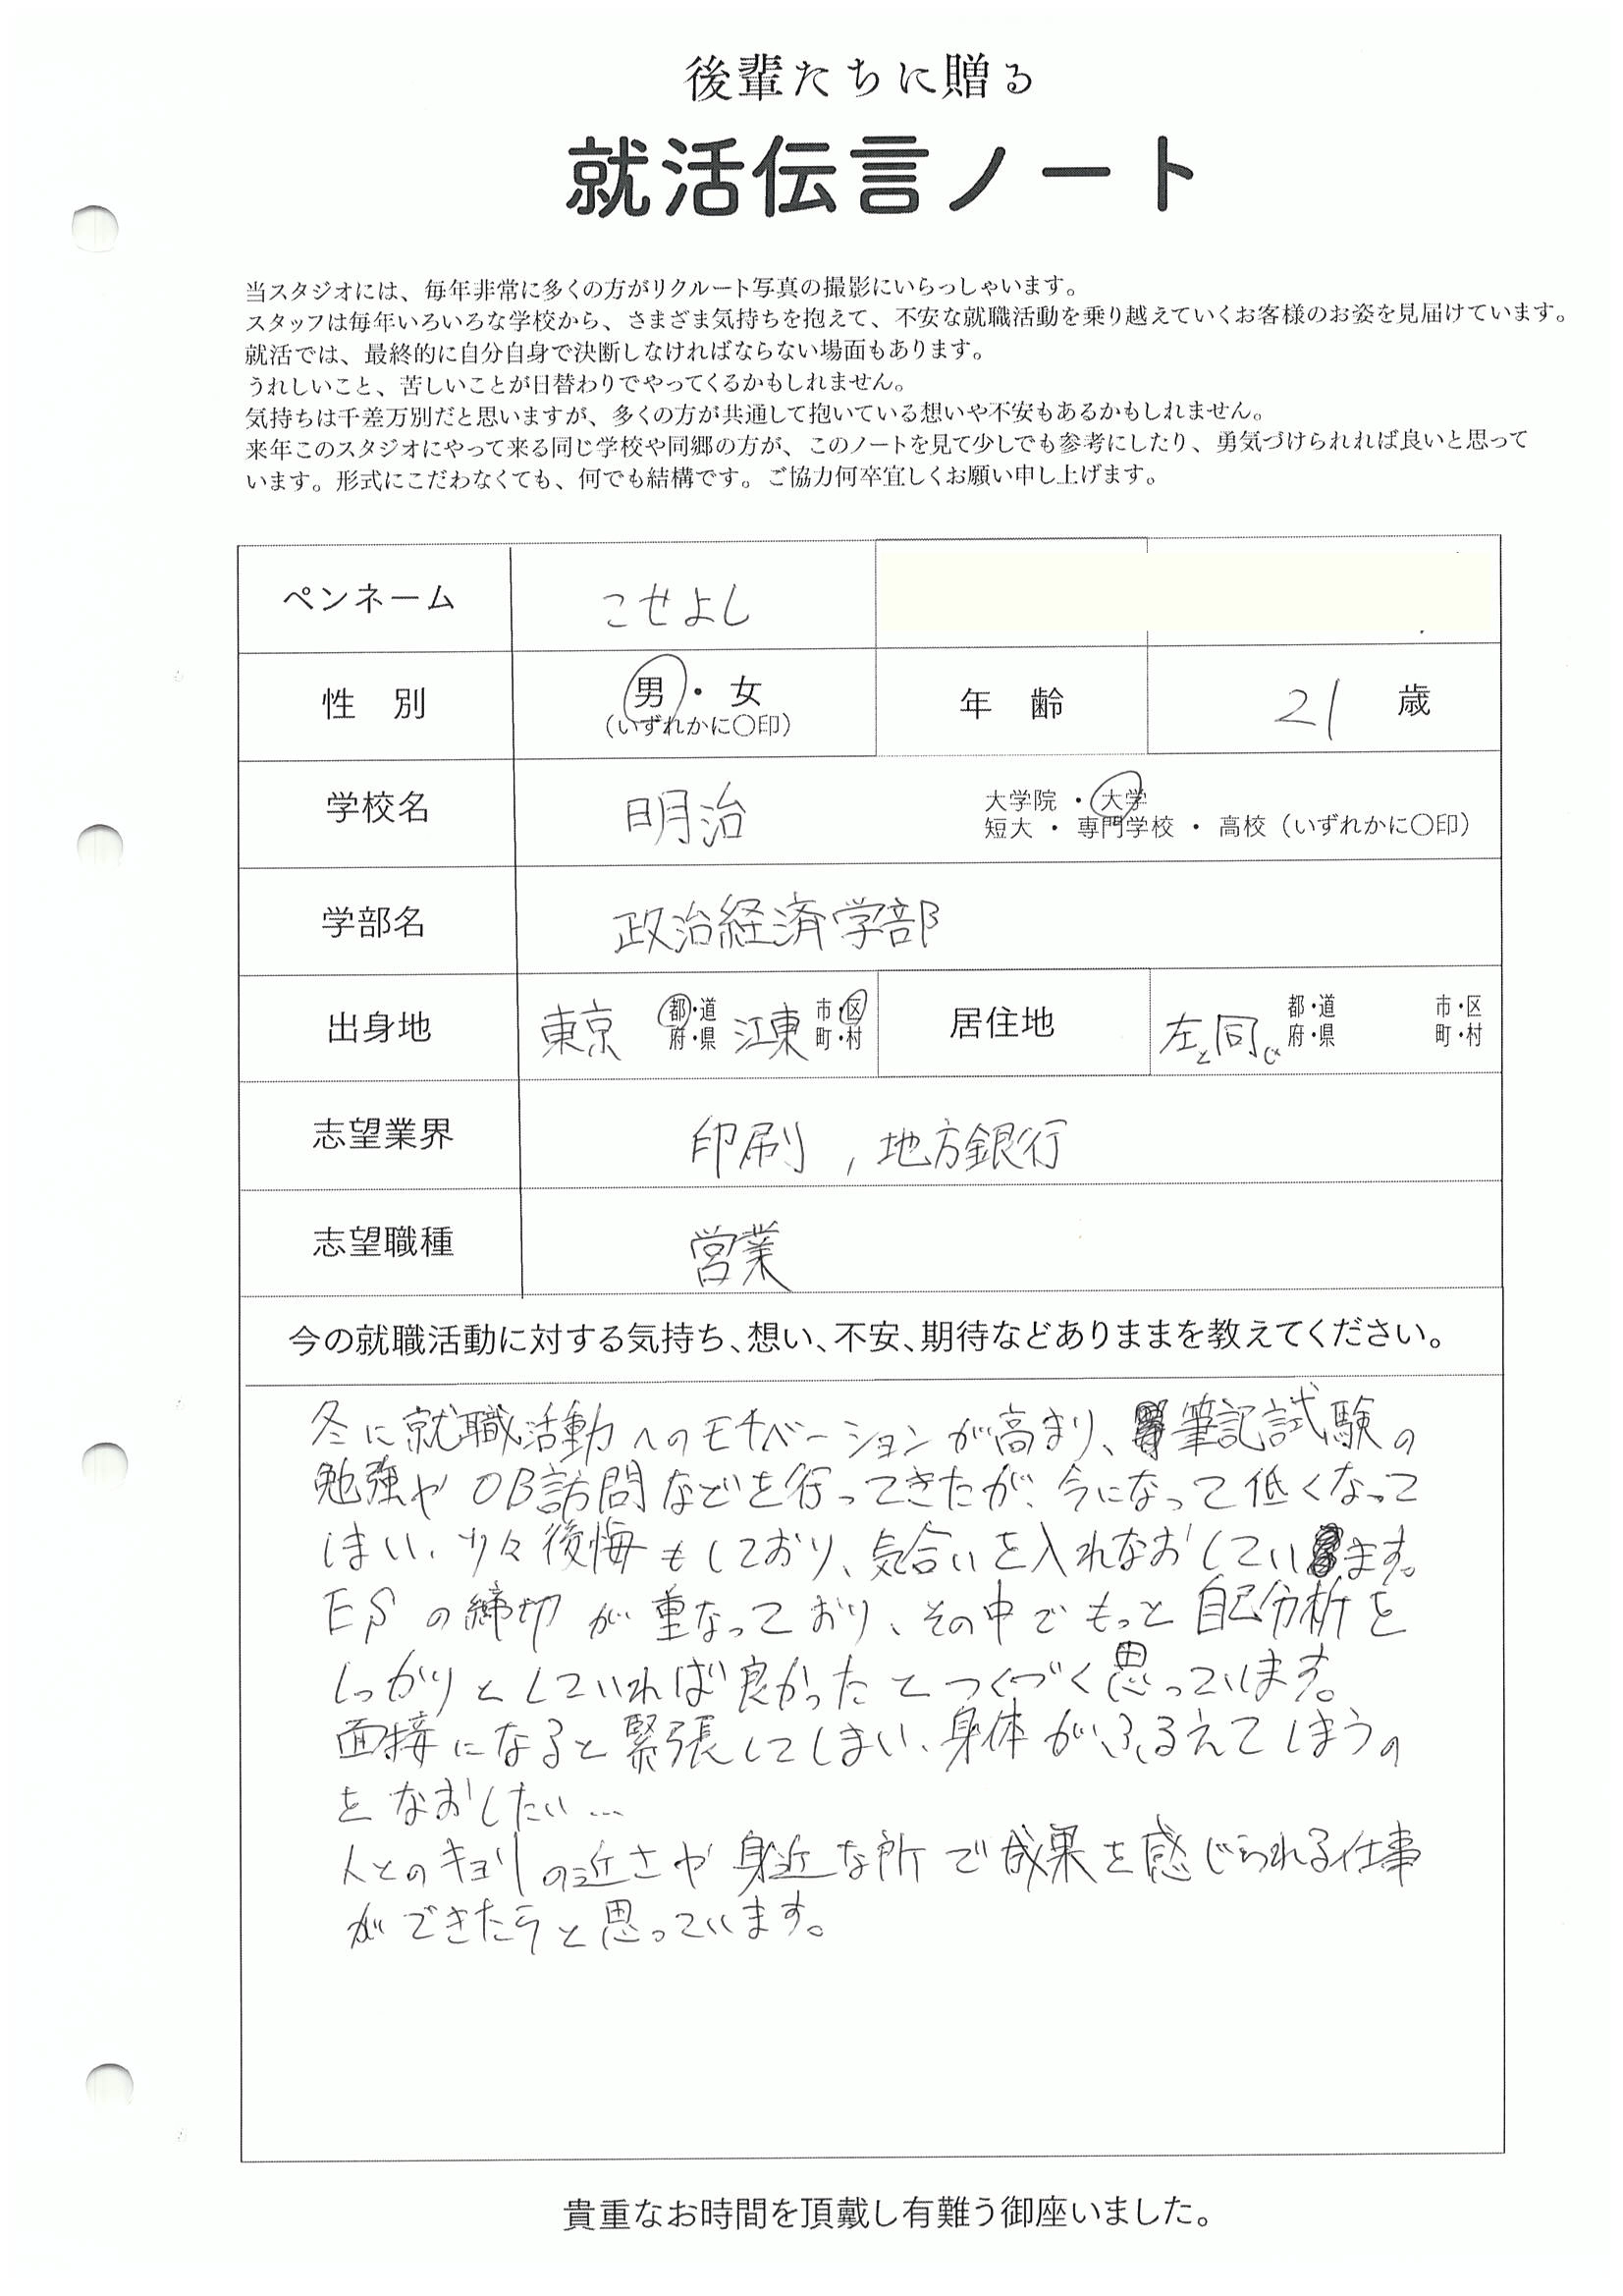 後輩たちに贈る
就活伝言ノート
当スタジオには、毎年非常に多くの方がリクルート写真の撮影にいらっしゃいます。
スタッフは毎年いろいろな学校から、さまざま気持ちを抱えて、不安な就職活動を乗り越えていくお客様のお姿を見届けています。
就活では、最終的に自分自身で決断しなければならない場面もあります。
うれしいこと、苦しいことが日替わりでやってくるかもしれません。
気持ちは千差万別だと思いますが、多くの方が共通して抱いている想いや不安もあるかもしれません。
来年このスタジオにやって来る同じ学校や同郷の方が、このノートを見て少しでも参考にしたり、勇気づけられれば良いと思って
います。形式にこだわなくても、何でも結構です。ご協力何卒宜しくお願い申し上げます。
ペンネーム こせよし
性 別 男・女 年 齢 21 歳
(いずれかに○印)
学校名 明治 大学院 ・ 大学
短大 ・ 専門学校 ・ 高校（いずれかに○印）
学部名 政治経済学部
出身地 東京 都・道 江東 市・区 居住地 左と同じ 都・道 市・区
府・県 町・村 府・県 町・村
志望業界 印刷, 地方銀行
志望職種 営業
今の就職活動に対する気持ち、想い、不安、期待などありままを教えてください。
冬に就職活動へのモチベーションが高まり、筆記試験の
勉強や OB訪問などを行ってきたが、今になって低くなって
しまい、少々後悔もしており、気合いを入れなおしています。
ESの締切が重なっており、その中でもっと自己分析を
しっかりとしていれば良かったとつくづく思っています。
面接になると緊張してしまい、身体がふるえてしまうの
をなおしたい…
人とのキョリの近さや身近な所で成果を感じられる仕事
ができたらと思っています。
貴重なお時間を頂戴し有難う御座いました。